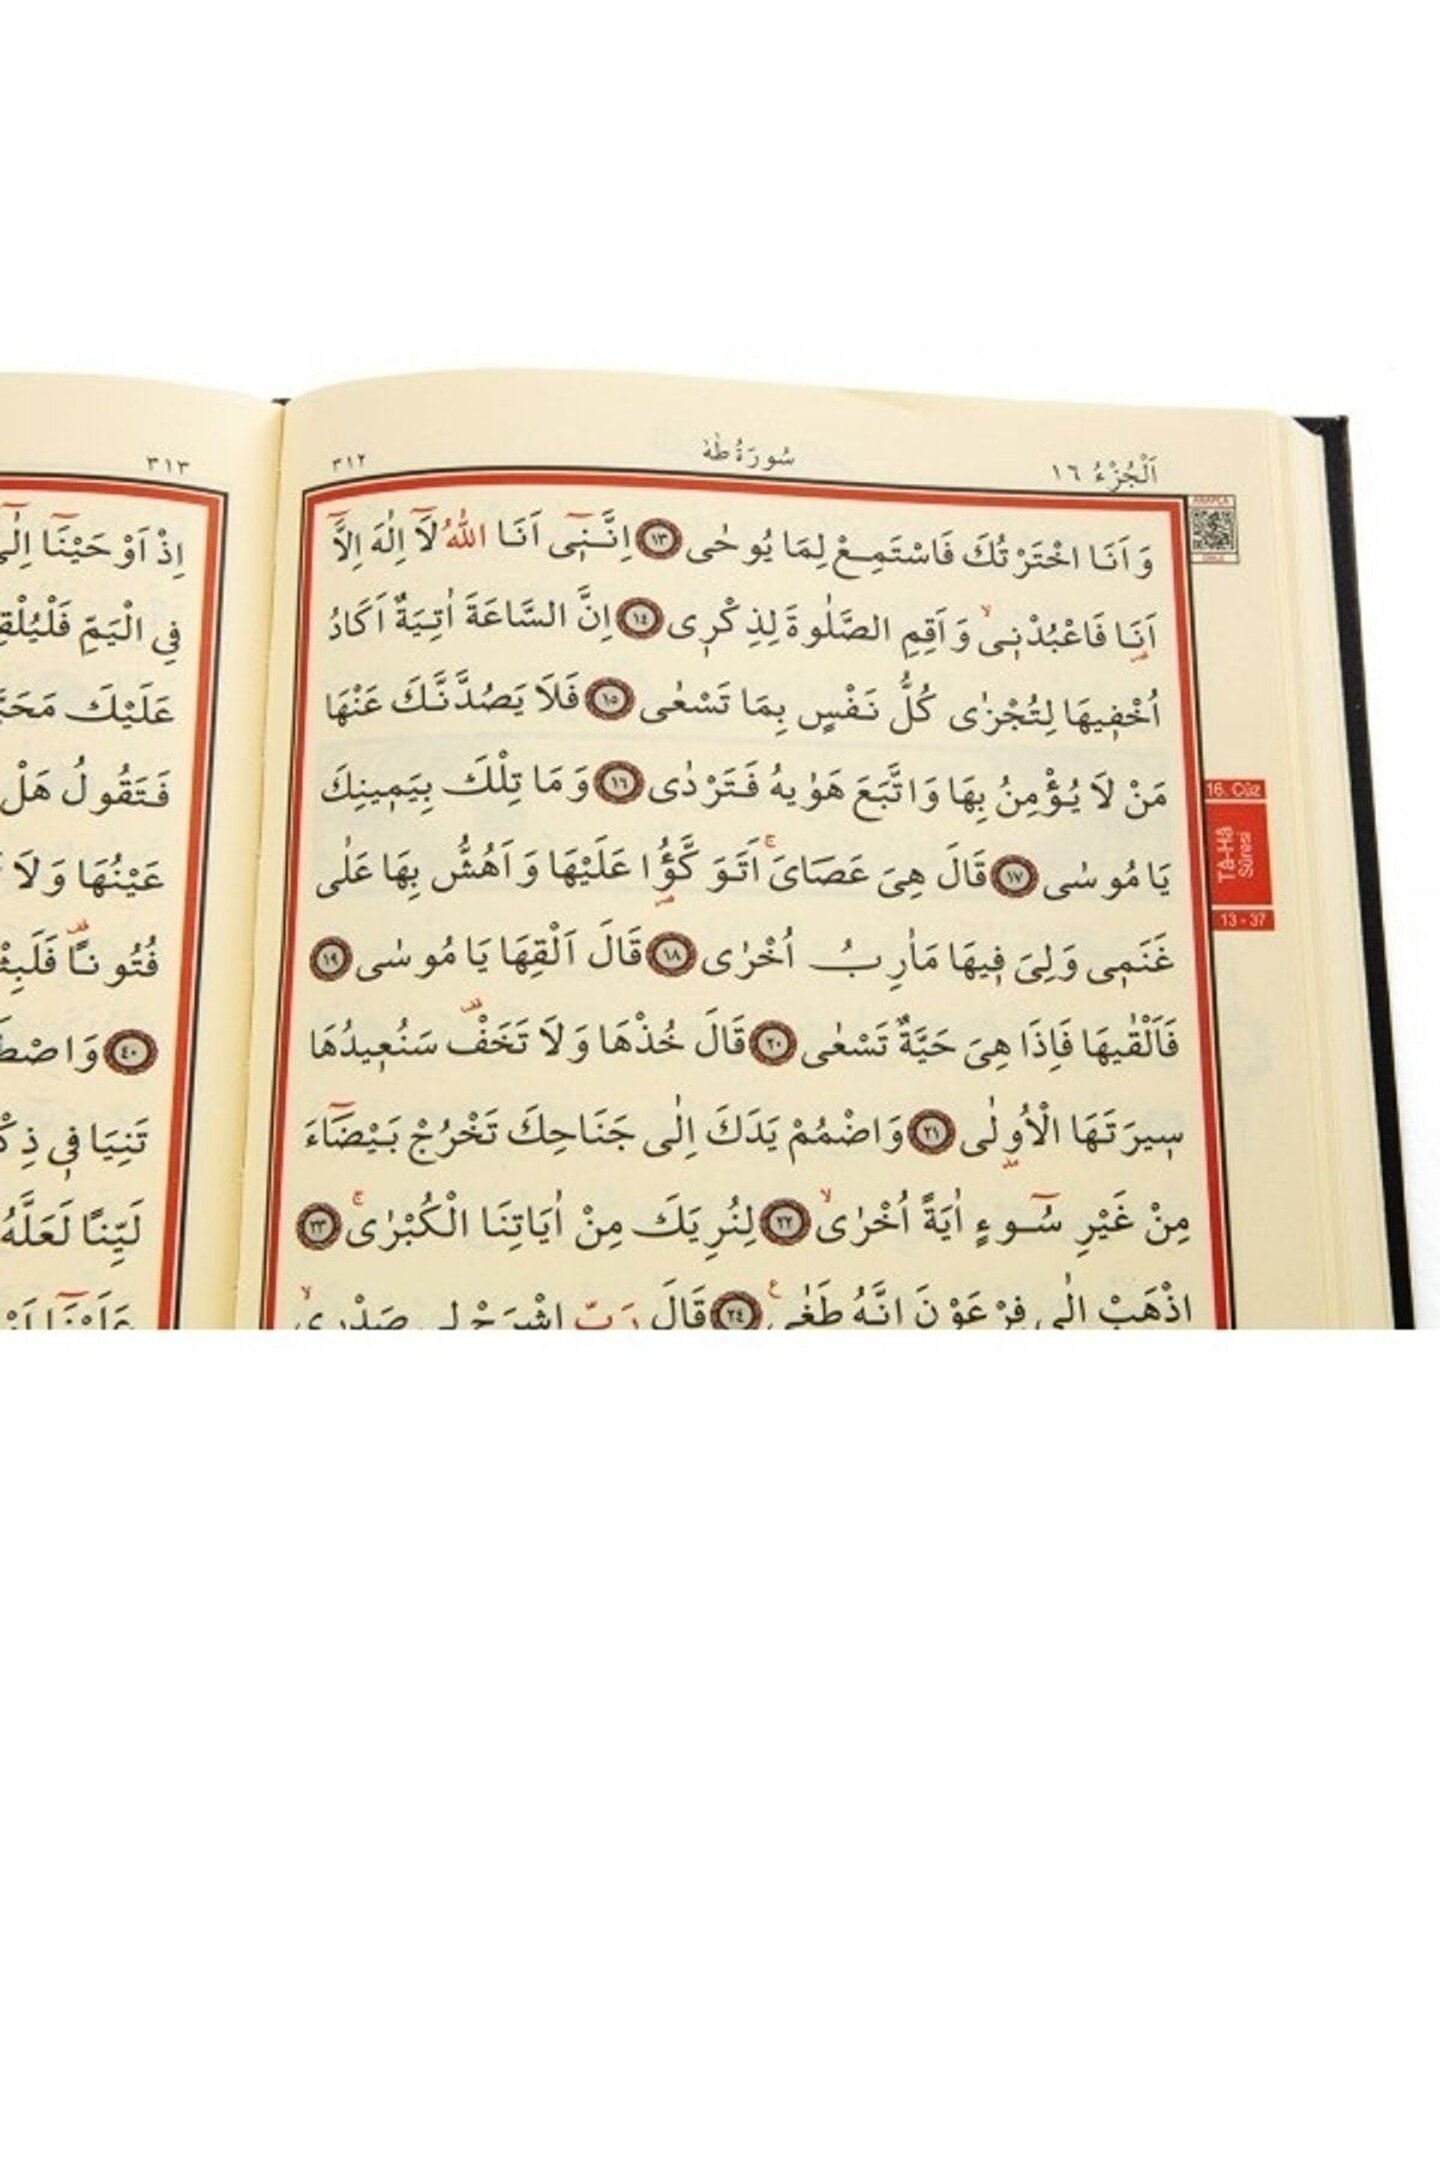 اَلْجُزْءُ ١٦
سُورَةُ طٰهٰ
٣١٢
وَاَنَا اخْتَرْتُكَ فَاسْتَمِعْ لِمَا يُوحٰى ﴿١٣﴾ اِنَّـنٖٓى اَنَا اللّٰهُ لَٓا اِلٰهَ اِلَّٓا
اَنَا فَاعْبُدْنٖىۙ وَاَقِمِ الصَّلٰوةَ لِذِكْرٖى ﴿١٤﴾ اِنَّ السَّاعَةَ اٰتِيَةٌ اَكَادُ
اُخْفٖيهَا لِتُجْزٰى كُلُّ نَفْسٍ بِمَا تَسْعٰى ﴿١٥﴾ فَلَا يَصُدَّنَّكَ عَنْهَا
مَنْ لَا يُؤْمِنُ بِهَا وَاتَّبَعَ هَوٰيهُ فَتَرْدٰى ﴿١٦﴾ وَمَا تِلْكَ بِيَمٖينِكَ
يَا مُوسٰى ﴿١٧﴾ قَالَ هِىَ عَصَاىَۚ اَتَوَكَّؤُا عَلَيْهَا وَاَهُشُّ بِهَا عَلٰى
غَنَمٖى وَلِىَ فٖيهَا مَاٰرِبُ اُخْرٰى ﴿١٨﴾ قَالَ اَلْقِهَا يَا مُوسٰى ﴿١٩﴾
فَاَلْقٰيهَا فَاِذَا هِىَ حَيَّةٌ تَسْعٰى ﴿٢٠﴾ قَالَ خُذْهَا وَلَا تَخَفْ۠ سَنُعٖيدُهَا
سٖيرَتَهَا الْاُو۫لٰى ﴿٢١﴾ وَاضْمُمْ يَدَكَ اِلٰى جَنَاحِكَ تَخْرُجْ بَيْضَٓاءَ
مِنْ غَيْرِ سُٓوءٍ اٰيَةً اُخْرٰىۙ ﴿٢٢﴾ لِنُرِيَكَ مِنْ اٰيَاتِنَا الْكُبْرٰىۚ ﴿٢٣﴾
اِذْهَبْ اِلٰى فِرْعَوْنَ اِنَّهُ طَغٰى ﴿٢٤﴾ قَالَ رَبِّ اشْرَحْ لٖى صَدْرٖىۙ
16. Cüz
Tâ-Hâ
Sûresi
13 - 37
٣١٣
اِذْ اَوْحَيْنَٓا اِلٰٓى
فِى الْيَمِّ
عَلَيْكَ
فَتَقُولُ هَلْ
عَيْنُهَا وَلَا
فُتُونًا
﴿٤٠﴾
تَنِيَا فٖى
لَيِّنًا لَعَلَّهُ
عَلَيْنَٓا